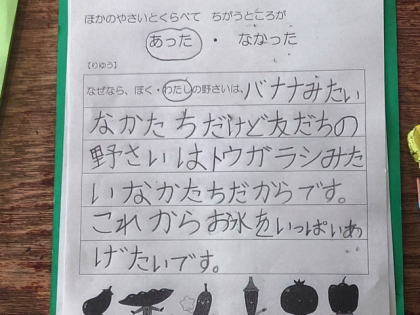 ほかのやさいとくらべて ちがうところが
あった ・ なかった
【りゆう】
なぜなら、ぼく・わたしの野さいは、バナナみたい
なかたちだけど友だちの
野さいはトウガラシみた
いなかたちだからです。
これからお水をいっぱいあ
げたいです。